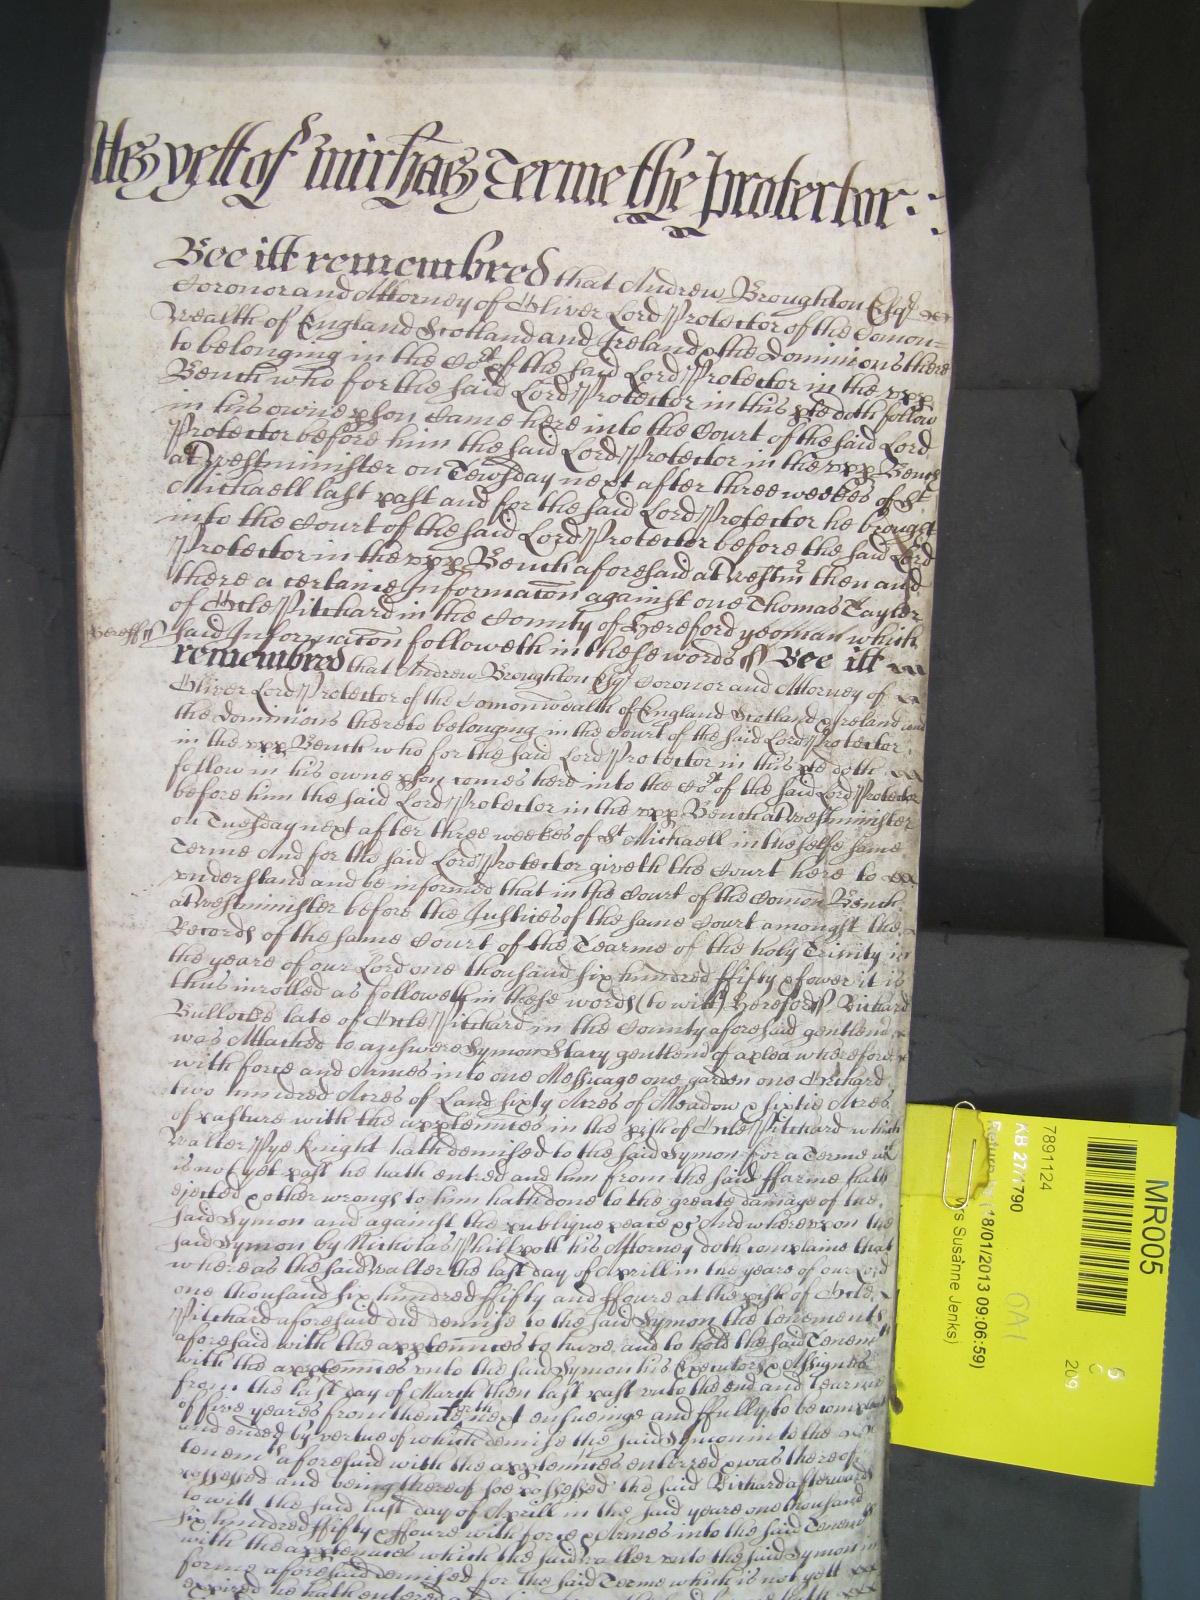 yett of Michaes Terme the Protector:
Bee itt remembred that Andrew Broughton Esqr
Coronor and Attorney of Oliver Lord Protector of the Comon=
wealth of England Scotland and Ireland & the Dominions there
to belonging in the Cort of the said Lord Protector in the upp
Bench who for the said Lord Protector in this pte doth follow
in his owne pson came here into the Court of the said Lord
Protector before him the said Lord Protector in the upp Bench
at Westminister on Tewsday next after three weekes of St
Michaell last past and for the said Lord Protector he brought
into the Court of the said Lord Protector before the said Lord
Protector in the upp Bench aforesaid at Westmr then and
there a certane Informacon against one Thomas Taylor
of Ocle Pitchard in the County of Hereford yeoman which
Hereff ss
said Informacon followeth in these words ss Bee itt
remembred that Andrew Broughton Esqr Coronor and Attorney of
Oliver Lord Protector of the Comonwealth of England Scotland & Ireland and
the Dominions thereto belonging in the Court of the said Lord Protector
in the upp Bench who for the said Lord Protector in this pte doth
follow in his owne pson comes here into the Cort of the said Lord Protector
before him the said Lord Protector in the upp Bench at Westminister
on Tuesday next after three weekes of St Michaell in the selfe same
Terme And for the said Lord Protector giveth the Court here to
understand and be informed that in the Court of the Comon Bench
at Westminister before the Justices of the same Court amongst the
Records of the same Court of the Tearme of the holy Trinity in
the yeare of our Lord one thousand six hundred fifty & fower it is
thus inrolled as followeth in these words (to witt) Hereford ss Richard
Bullocke late of Ocle Pitchard in the County aforesaid gentlend
was Attached to answere Symon Stacy gentlend of a plea wherefore
with force and Armes into one Messuage one garden one Orchard
two hundred Acres of Land sixty Acres of Meadow & sixtie Acres
of pasture with the apptennces in the pish of Ocle Pitchard which
Walter Pye Knight hath demised to the said Symon for a Terme wch
is not yet past he hath entred and him from the said ffarme hath
ejected & other wrongs to him hath done to the greate damage of the
said Symon and against the publique peace &c And whereupon the
said Symon by Nicholas Phillpott his Attorney doth complaine that
whereas the said Walter the last day of Aprill in the yeare of our Lord
one thousand six hundred ffifty and ffoure at the pish of Ocle
Pitchard aforesaid did demise to the said Symon the tenements
aforesaid with the apptennces to have and to hold the said Tenemts
with the apptennces unto the said Symon his Executors & Assignes
from the last day of March then last past unto the end and tearme
of five yeares from thenceforth next ensueinge and ffully to be
and ended by vertue of which demise the said Symon into the
tenemts aforesaid with the apptennces entered & was thereof
possessed and being thereof soe possessed the said Richard afterwards
to witt the said last day of Aprill in the said yeare one thousand
six hundred ffifty & ffoure with force & Armes into the said Tenemts
with the apptennces which the said Walter unto the said Symon in
forme aforesaid demised for the said Terme which is not yett
expired he hath entered
MR005
7891124
KB 27/1790
Return by (18/01/2013 09:06:59)
rs Susanne Jenks)
OA1
209
6
C